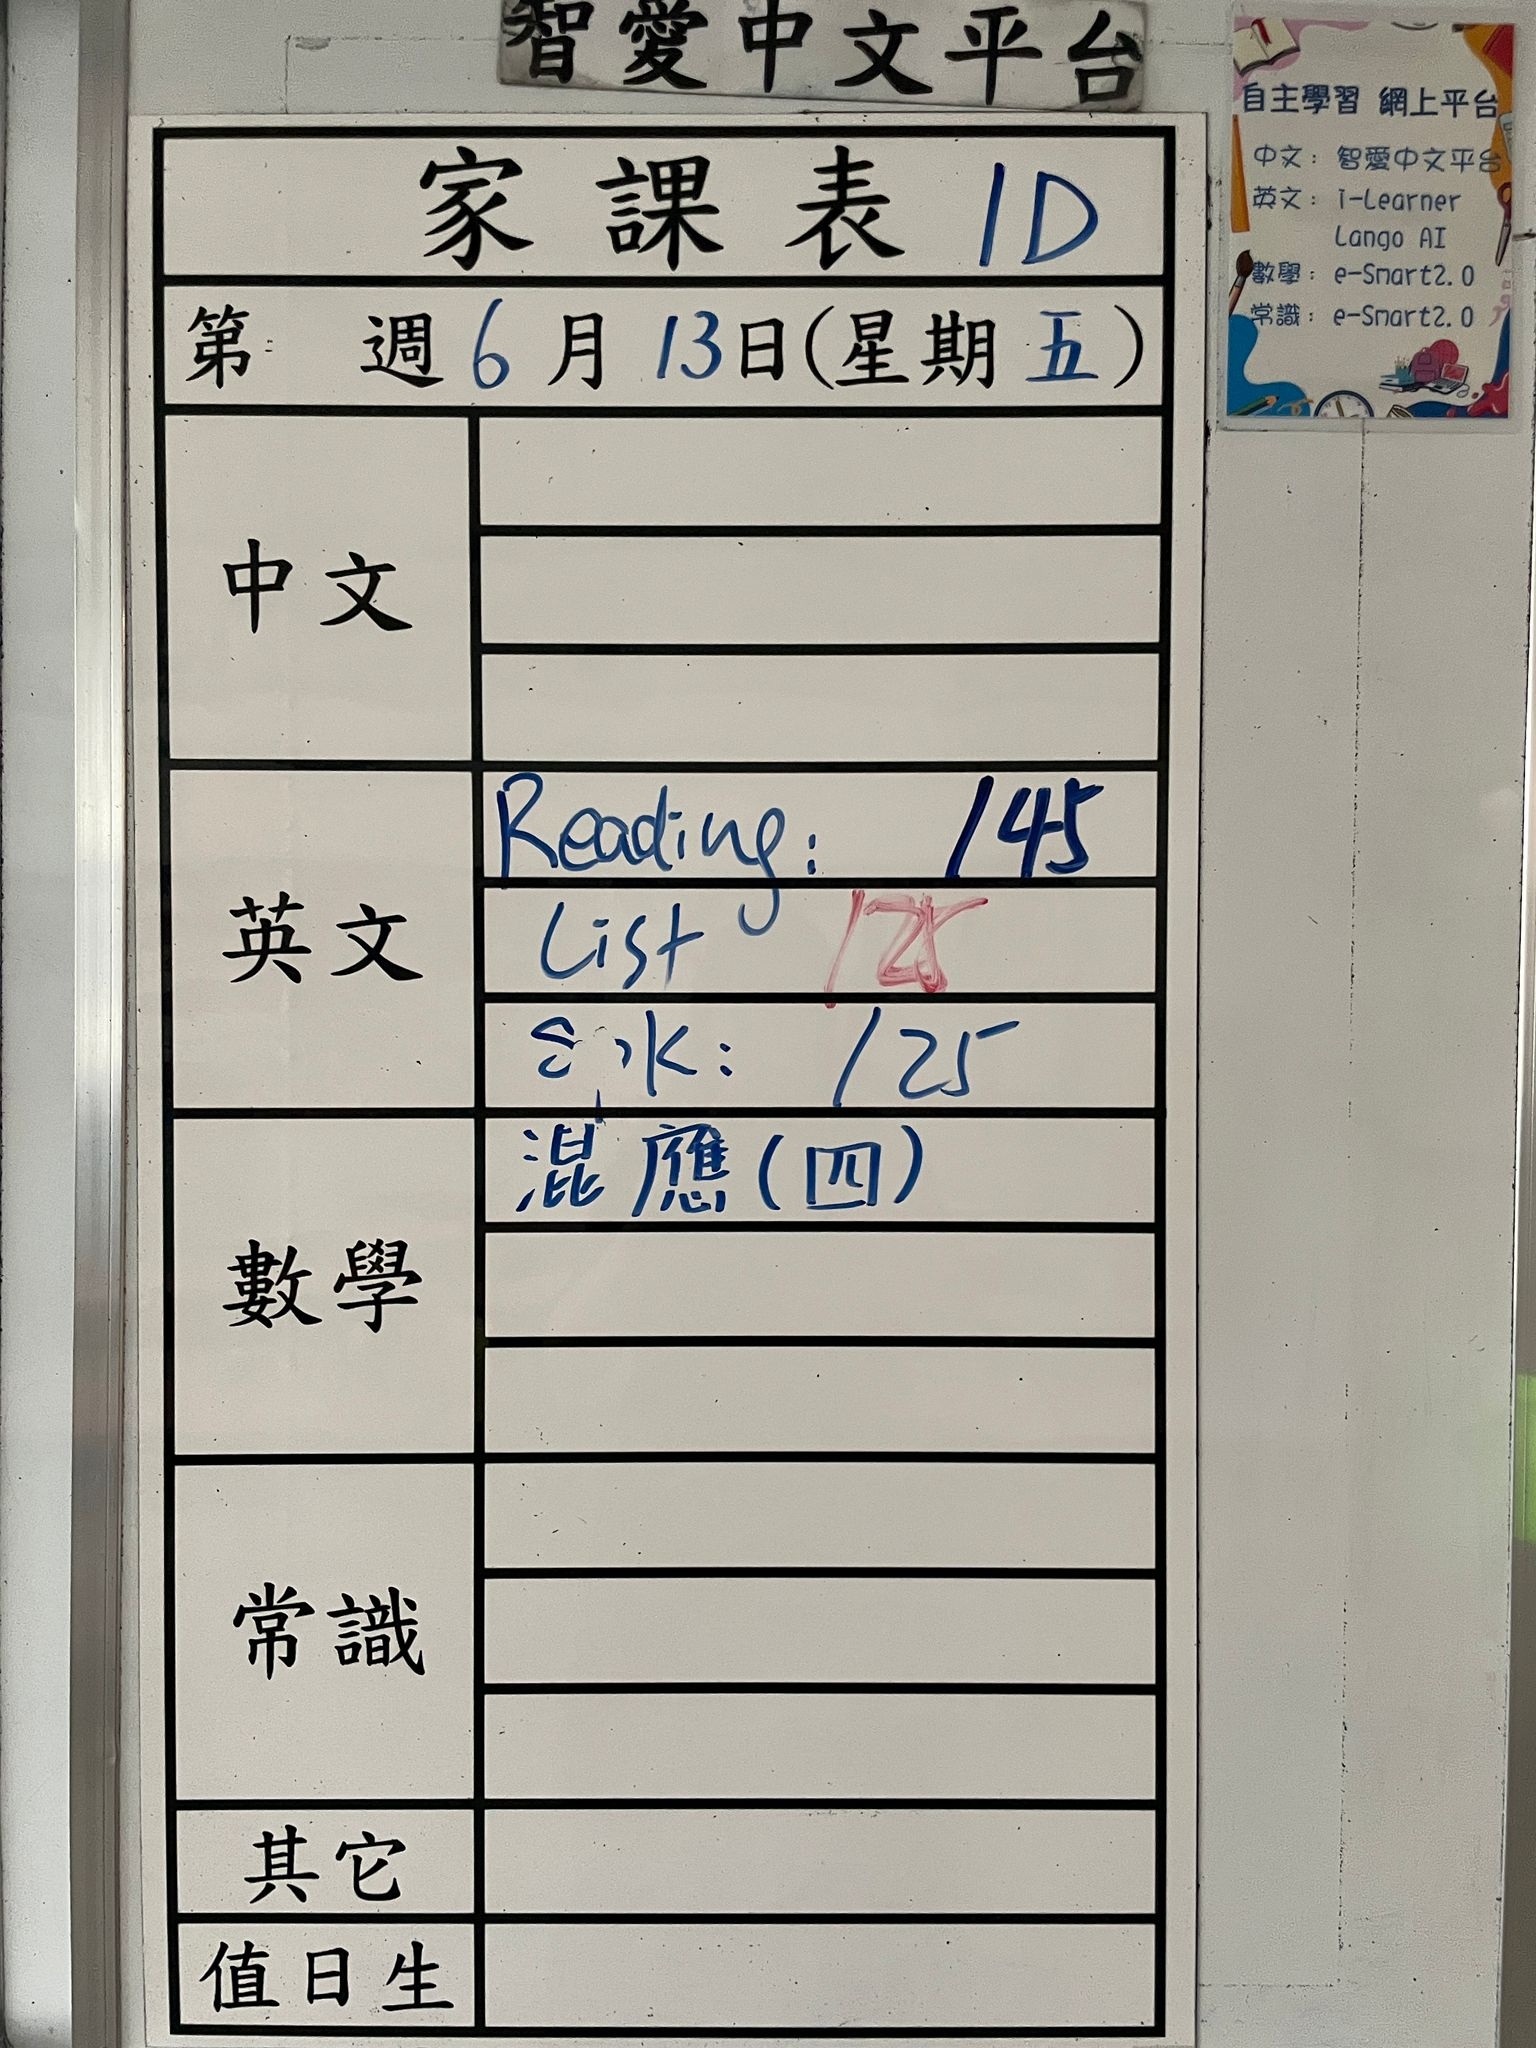 智愛中文平台
自主學習 網上平台
中文：智愛中文平台
英文：i-Learner
Lango AI
數學：e-Smart2.0
常識：e-Smart2.0
家課表 1D
第 週 6月13日(星期五)
中文
英文
Reading: /45
List /25
/25
數學
混應(四)
常識
其它
值日生